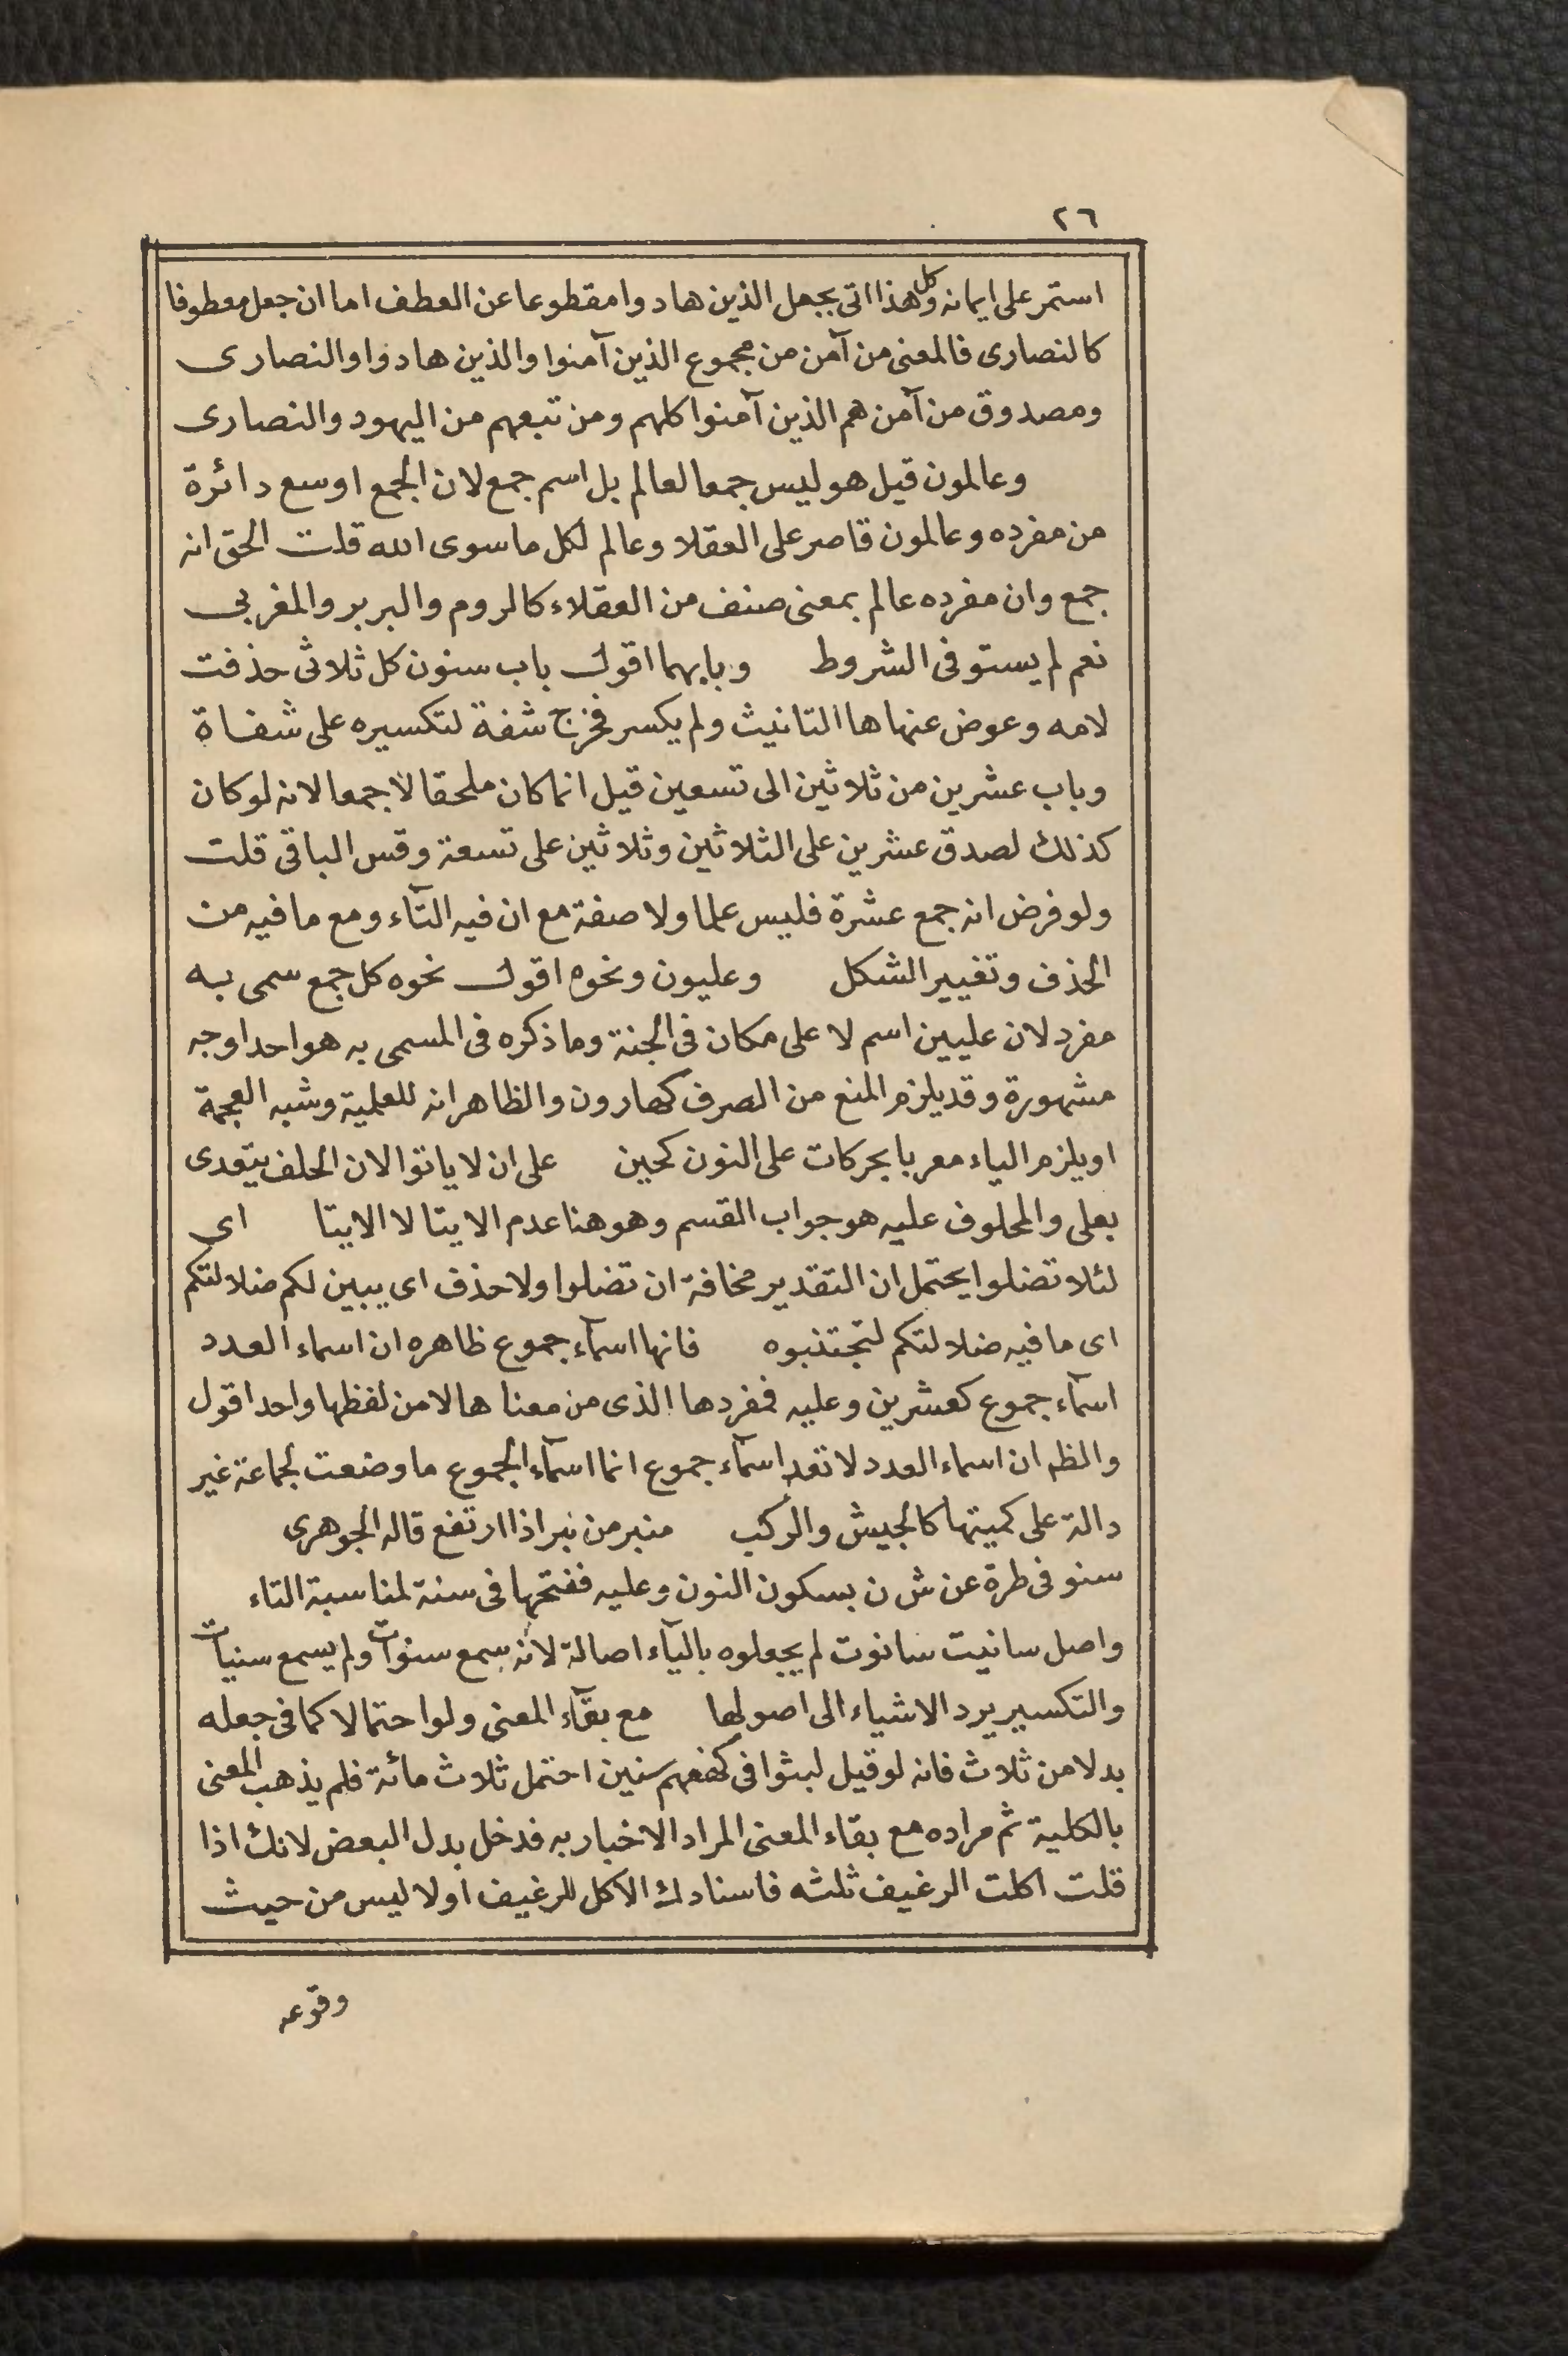 ٢٦
استمر على ايمانه وكل هذا اتى بجعل الذين هادوا مقطوعا عن العطف اما ان جعل معطوفا
كالنصارى فالمعنى من آمن من مجموع الذين آمنوا والذين هادوا والنصارى
ومصدوق من آمن هم الذين آمنوا كلهم ومن تبعهم من اليهود والنصارى
وعالمون قيل هو ليس جمعا لعالم بل اسم جمع لان الجمع اوسع دائرة
من مفرده وعالمون قاصر على العقلا وعالم لكل ما سوى الله قلت الحق انه
جمع وان مفرده عالم بمعنى صنف من العقلاء كالروم والبربر والمغربى
نعم لم يستو فى الشروط وبابهما اقول باب سنون كل ثلاثى حذفت
لامه وعوض عنها ها التانيث ولم يكسر فخرج شفة لتكسيره على شفاة
وباب عشرين من ثلاثين الى تسعين قيل انما كان ملحقا لا جمعا لانه لو كان
كذلك لصدق عشرين على الثلاثين وثلاثين على تسعة وقس الباقى قلت
ولو فرض انه جمع عشرة فليس علما ولا صفة مع ان فيه التآء ومع ما فيه من
الحذف وتغيير الشكل وعليون ونحوه اقول نحوه كل جمع سمى به
مفرد لان عليين اسم لا على مكان فى الجنة وما ذكره فى المسمى به هو احد اوجه
مشهورة وقد يلزم المنع من الصرف كهارون والظاهر انه للعلمية وشبه العجمة
او يلزم الياء معربا بحركات على النون كحين على ان لا ياتوا لان الحلف يتعدى
بعلى والمحلوف عليه هو جواب القسم وهو هنا عدم الايتا لا الايتا اى
لئلا تضلوا يحتمل ان التقدير مخافة ان تضلوا ولا حذف اى يبين لكم ضلالتكم
اى ما فيه ضلالتكم لتجتنبوه فانها اسمآء جموع ظاهره ان اسماء العدد
اسمآء جموع كعشرين وعليه فمفردها الذى من معناها لا من لفظها واحد اقول
والظم ان اسماء العدد لا تعد اسمآء جموع انما اسمآء الجموع ما وضعت لجماعة غير
دالة على كميتها كالجيش والركب منبر من نبر اذا ارتفع قاله الجوهرى
سنو فى طرة عن ش ن بسكون النون وعليه ففتحها فى سنة لمناسبة التاء
واصل سانيت سانوت لم يجعلوه باليآء اصالة لانه سمع سنوات ولم يسمع سنيات
والتكسير يرد الاشياء الى اصولها مع بقآء المعنى ولو احتمالا كما فى جعله
بدلا من ثلاث فانه لو قيل لبثوا فى كهفهم سنين احتمل ثلاث مائة فلم يذهب المعنى
بالكلية ثم مراده مع بقاء المعنى المراد الاخبار به فدخل بدل البعض لانك اذا
قلت اكلت الرغيف ثلثه فاسنادك الاكل للرغيف اولا ليس من حيث
وقوعه